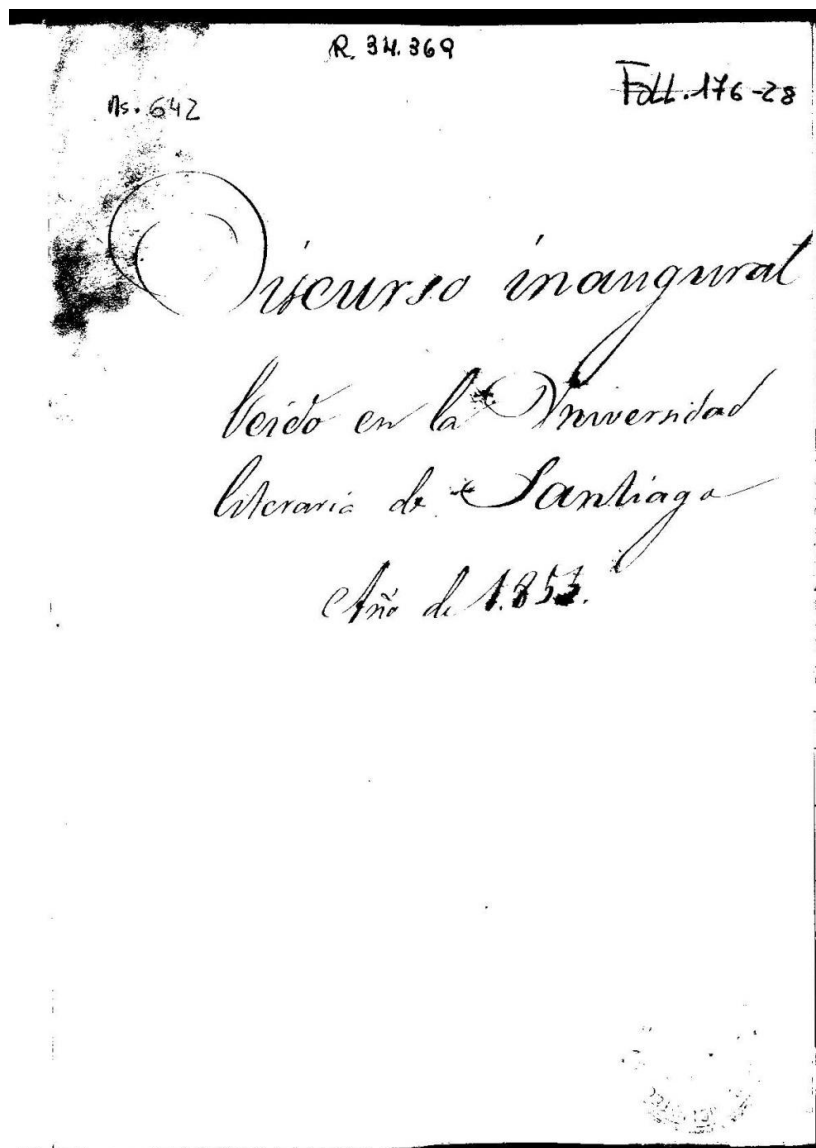 R. 34.369
Foll. 176-28
Ms. 642
Discurso inaugural
leido en la Universidad
literaria de Santiago
Año de